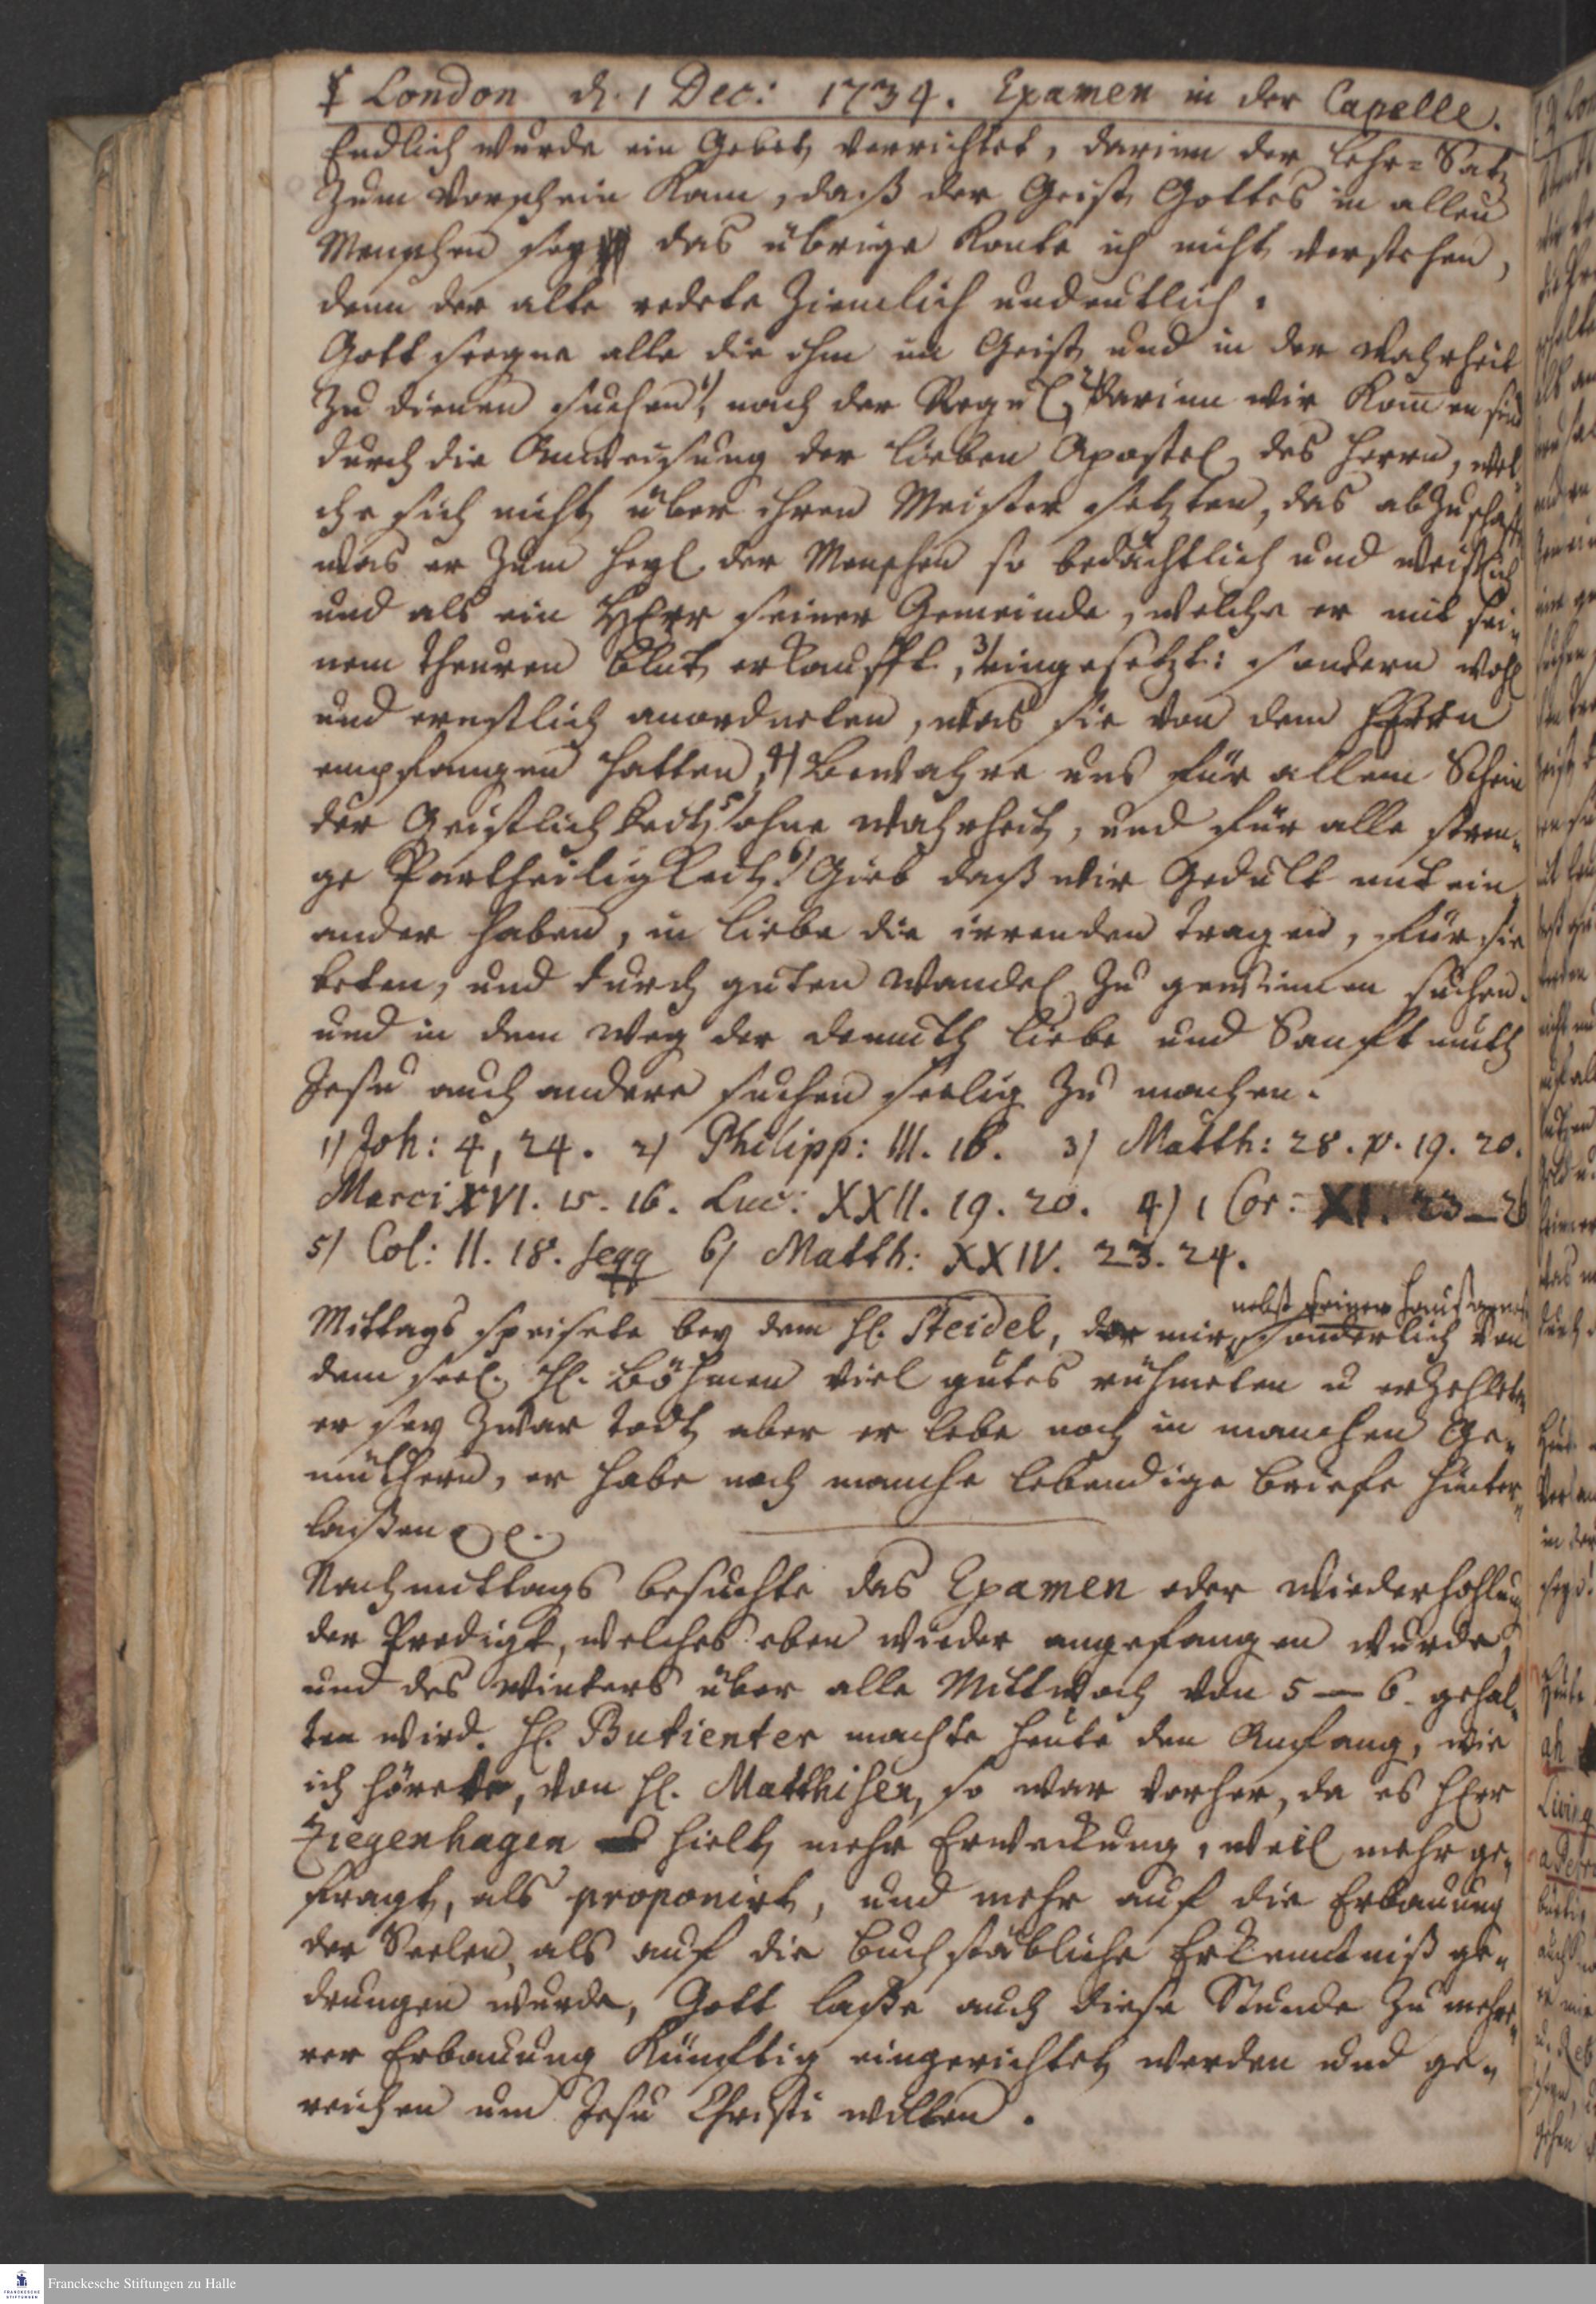 ☿ London d. 1 Dec: 1734. Examen in der Capelle.
Endlich wurde ein Gebet verrichtet, darinn der Lehr-Satz
zum Vorschein kam, daß der Geist Gottes in allen
Menschen sey das übrige konte ich nicht verstehen,
denn der alte redete ziemlich undeutlich.
Gott seegne alle die ihm im Geist und in der Wahrheit
zu dienen suchen 1) nach der Regul, 2) darinn wir kom̅en sind
durch die Anweisung der lieben Apostel des Herrn, wel-
che sich nicht über ihren Meister setzten, das abzuschaff
was er zum Heyl der Menschen so bedächtlich und weißlich
und als ein HErr seiner Gemeinde, welche er mit sei-
nem theuren Blut erkaufft, 3) eingesetzt: sondern wohl
und ernstlich anordneten, was sie von dem HErrn
empfangen hatten, 4) Bewahre uns für allem Schein
der Geistlichkeit 5) ohne Wahrheit, und für alle stren-
ge Partheiligkeit. 6) Gieb daß wir Gedult mit ein
ander haben, in Liebe die irrenden tragen, für sie
beten, und durch guten Wandel zu gewinnen suchen.
und in dem Weg der Demuth Liebe und Sanftmuth
Jesu auch andere suchen seelig zu machen.
1) Joh: 4, 24. 2) Philipp: III. 16. 3) Matth: 28. v. 19. 20.
Marci XVI. 15. 16. Luc: XXII. 19. 20. 4) 1 Cor: XI. 23–26
5) Col: II. 18. seqq 6) Matth: XXIV. 23. 24.
nebst seinen Haußgenoß
Mittags speisete bey dem H. Steidel, der mir sonderlich von
dem seel. H. Böhmen viel gutes rühmeten u erzehleten
er sey zwar todt aber er lebe noch in manchen Ge-
müthern, er habe noch manche lebendige Briefe hinter-
laßen
Nachmittags besuchte das Examen oder Wiederhohlung
der Predigt, welches eben wieder angefangen wurde,
und des Winters über alle Mittwoch von 5 — 6 gehal-
ten wird. H. Butienter machte heute den Anfang, wie
ich hörete, von H. Matthisen, so war vorher, da es HErr
Ziegenhagen hielt mehr Erweckung, weil mehr ge-
fragt, als proponirt, und mehr auf die Erbauung
der Seelen, als auf die buchstäbliche Erkenntniß ge-
drungen wurde, Gott laße auch diese Stunde zu mehre-
rer Erbauung künftig eingerichtet werden und ge-
reichen um Jesu Christi willen.
Franckesche Stiftungen zu Halle